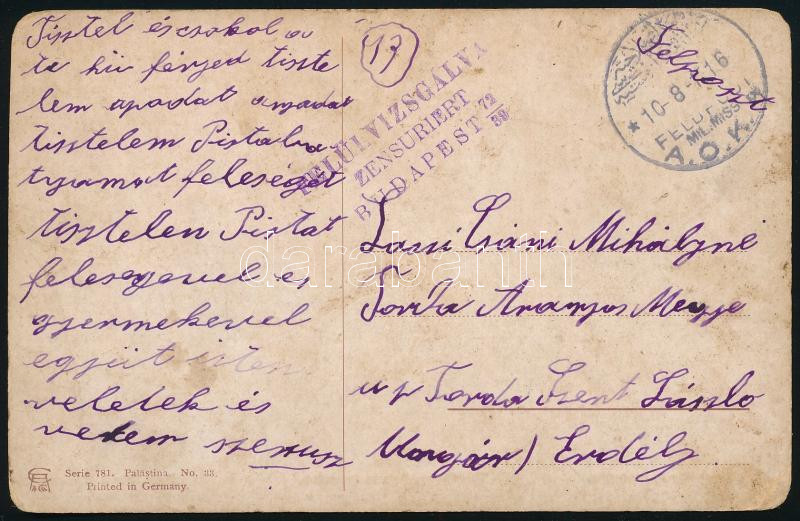 Tisztel és csokol
te hü férjed tiszte
lem apadat anyadat
tisztelem Pista
tyamat feleségét
tisztelem Pistat
feleségevel es
gyermekevel
együt isten
veletek és
velem szerusz
17
FELÜLVIZSGÁLVA
ZENSURIERT
BUDAPEST 72/39
10-8-16
FELDP
MIL.MISS
A.O.K.
Mihályné
Torda Aranyos Megye
u p Torda Szent László
Erdély
Serie 781. Palästina. No. 33.
Printed in Germany.
darabanth